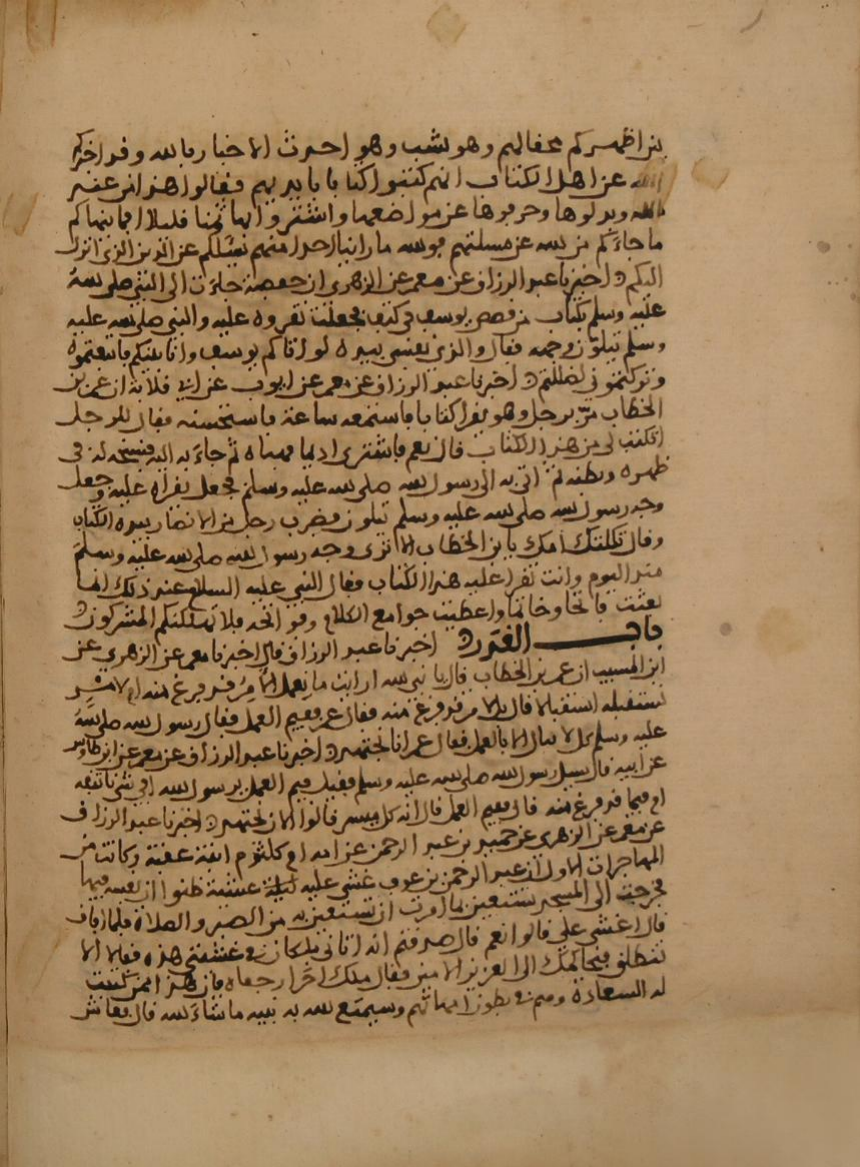 بين اظهركم محض لم وهو يشب وهو احدث الاخبار بالله وقد اخبركم
الله عن اهل الكتاب انهم كتبوا كتابا بايديهم فقالوا هذا من عند
الله وبدلوها وحرفوها عن مواضعها واشتروا بها ثمنا قليلا افما ينهاكم
ما جاءكم من الله عن مسلتهم فوالله ما راينا احدا منهم يسئلكم عن الدين الذي انزل
اليكم اخبرنا عبد الرزاق عن معمر عن الزهري ان حفصة جاءت الى النبي صلى الله
عليه وسلم بكتاب من قصص يوسف في كتف فجعلت تقروه عليه والنبي صلى الله عليه
وسلم يتلون وجهه فقال والذي نفسي بيده لو اتاكم يوسف وانا بينكم فاتبعتموه
وتركتموني لضللتم اخبرنا عبد الرزاق عن معمر عن ايوب عن ابي قلابة ان عمر بن
الخطاب مر برجل وهو يقرا كتابا فاستمعه ساعة فاستحسنه فقال للرجل
اتكتب لي من هذا الكتاب قال نعم فاشترى اديما فهناه ثم جاء به اليه فنسخه له في
ظهره وبطنه ثم اتى به الى رسول الله صلى الله عليه وسلم فجعل يقراه عليه وجعل
وجه رسول الله صلى الله عليه وسلم يتلون فضرب رجل من الانصار بيده الكتاب
وقال ثكلتك امك يا بن الخطاب الا ترى وجه رسول الله صلى الله عليه وسلم
منذ اليوم وانت تقرا عليه هذا الكتاب فقال النبي عليه السلام عند ذلك انما
بعثت فاتحا وخاتما واعطيت جوامع الكلام وفواتحه فلا يهلكنكم المشركون
باب القدر اخبرنا عبد الرزاق قال اخبرنا معمر عن الزهري عن
ابن المسيب ان عمر بن الخطاب قال يا نبي الله ارايت ما نعمل الامر قد فرغ منه ام لامر
نستقبله استقبالا قال بل لامر قد فرغ منه فقال عمر ففيم العمل فقال رسول الله صلى الله
عليه وسلم كل لا ينال الا بالعمل فقال عمر اذا نجتهد اخبرنا عبد الرزاق عن معمر عن ابن طاوس
عن ابيه قال سيل رسول الله صلى الله عليه وسلم فقيل فيم العمل يرسول الله افي شي ناتنفه
ام فيما قد فرغ منه قال ففيم العمل قال انه كل ميسر قالوا الان نجتهد اخبرنا عبد الرزاق
عن معمر عن الزهري عن حميد بن عبد الرحمن عن امه ام كلثوم ابنة عقبة وكانت من
المهاجرات الاول ان عبد الرحمن بن عوف غشي عليه غشية ظنوا ان نفسه فيها
فخرجت الى المسجد تستعين بما امرت ان تستعين به من الصبر والصلاة فلما افاق
قال اغشي علي قالوا نعم قال صدقتم انه اتاني ملكان في غشيتي هذه فقالا الا
تنطلق فنحاكمك الى العزيز الامين فقال ملك اخر ارجعاه فان هذا ممن كتبت
له السعادة وهم في بطون امهاتهم وسيمتع الله به بنيه ما شاء الله قال فعاش